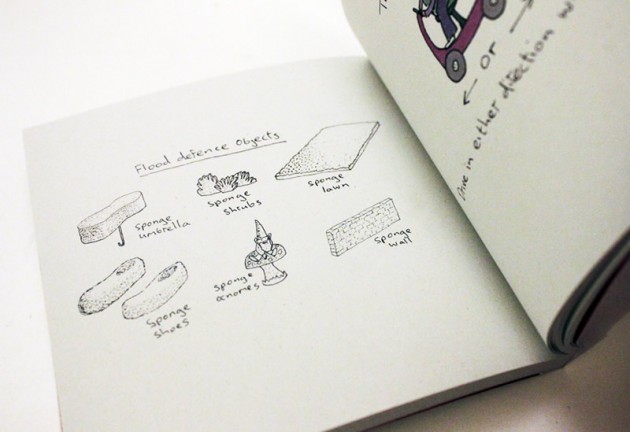 Flood defence Objects
sponge
umbrella
sponge
shrubs
sponge
lawn
sponge
shoes
sponge
gnomes
sponge
wall
or
Drive in either direction